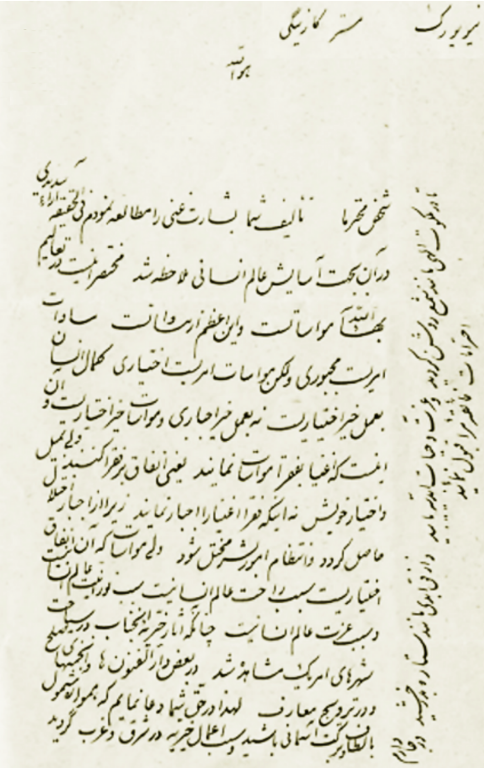 نیویورک
مستر کارنیگی
هوالله
شخص محترما تألیف شما بشارت غنی را مطالعه نمودم فی الحقیقه آراء سدیدی
در آن بجهت آسایش عالم انسانی ملاحظه شد مختصر اینست در تعالیم
بهاءالله مواساتست و این اعظم از مساواتست مساوات
امریست مجبوری ولکن مواسات امریست اختیاری کمال انسان
بعمل خیر اختیاریست نه بعمل خیر اجباری و مواسات خیر اختیاریست و آن
اینست که اغنیا بفقرا مواسات نمایند یعنی انفاق بر فقرا کنند ولی بمیل
و اختیار خویش نه اینکه فقرا اغنیا را اجبار نمایند زیرا از اجبار اختلال
حاصل گردد و انتظام امور بشر مختل شود ولی مواسات که آن انفاق
اختیاریست سبب راحت عالم انسانیست سبب نورانیت عالم انسانیست
و سبب عزت عالم انسانیست چنانکه آثار خیریه آنجناب در سیاحت
شهرهای امریک مشاهده شد در بعض دارالفنون ها و انجمنهای صلح
و در ترویج معارف لهذا در حق شما دعا نمایم که همواره مشمول
بالطاف و برکت آسمانی باشید و سبب اعمال خیریه در شرق و غرب گردید
تا در ملکوت الهی مانند شمع روشن گردید و عزت و حیات ابدیه یابید و از افق ابدی مانند ستاره بدرخشید
احترامات فائقه مرا قبول نمائید